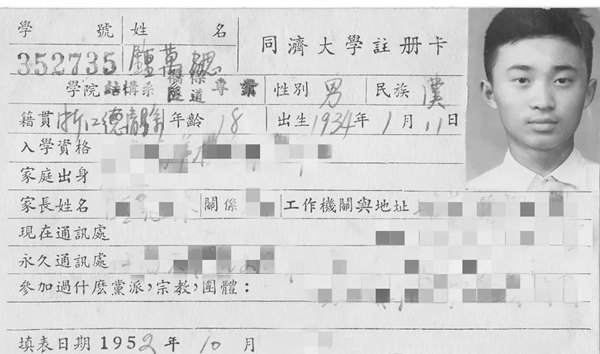 學號 姓名 同濟大學註册卡
352735 鍾萬勰
學院 結構系 隧道 專業 性別 男 民族 漢
籍貫 浙江德清縣 年齡 18 出生 1934年 1月 11日
入學資格
家庭出身
家長姓名 關係 工作機關與地址
現在通訊處
永久通訊處
參加過什麽黨派,宗教,團體:
填表日期 1952年 10月